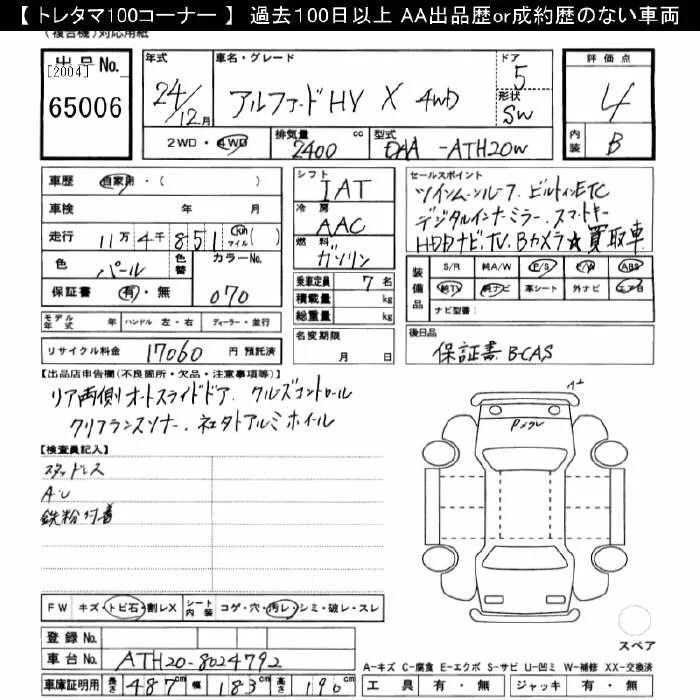 【 トレタマ100コーナー 】 過去100日以上 AA出品歴or成約歴のない車両
(複合機)対応用紙
出品No.
[2004]
65006
年式
24/12月
車名・グレード
アルファードHV X 4WD
ドア
5
形状
SW
評価点
4
内装
B
2WD・4WD
排気量
2400
cc
型式
DAA-ATH20W
車歴
自家用・( )
車検
年 月
走行
11万4千851
Km
マイル
( )
色
パール
色替
カラーNo.
070
保証書
有・無
シフト
IAT
冷房
AAC
燃料
ガソリン
乗車定員
7名
積載量
kg
総重量
kg
名変期限
月 日
セールスポイント
ツインムーンルーフ、ビルトインETC
デジタルインナーミラー、スマートキー
HDDナビ、TV、Bカメラ★買取車
装備品
S/R 純A/W P/S P/W ABS
純TV 純ナビ 革シート 外ナビ エアB
ナビ型番:
モデル年式
年
ハンドル 左・右
ディーラー・並行
リサイクル料金
17060
円 預託済
後日品
保証書 B-CAS
【出品店申告欄(不良箇所・欠品・注意事項等)】
リア両側オートスライドドア、クルーズコントロール
クリアランスソナー、社外アルミホイール
【検査員記入】
スタッドレス
A・U
鉄粉付着
A2
Pメクレ
FW
キズ・トビ石・割レX
シート内装
コゲ・穴・汚レ・シミ・破レ・スレ
スペア
登録No.
車台No.
ATH20-8024792
車庫証明用
長さ
487
cm
幅
183
cm
高さ
190
cm
A-キズ C-腐食 E-エクボ S-サビ U-凹ミ W-補修 XX-交換済
工具 有・無
ジャッキ 有・無